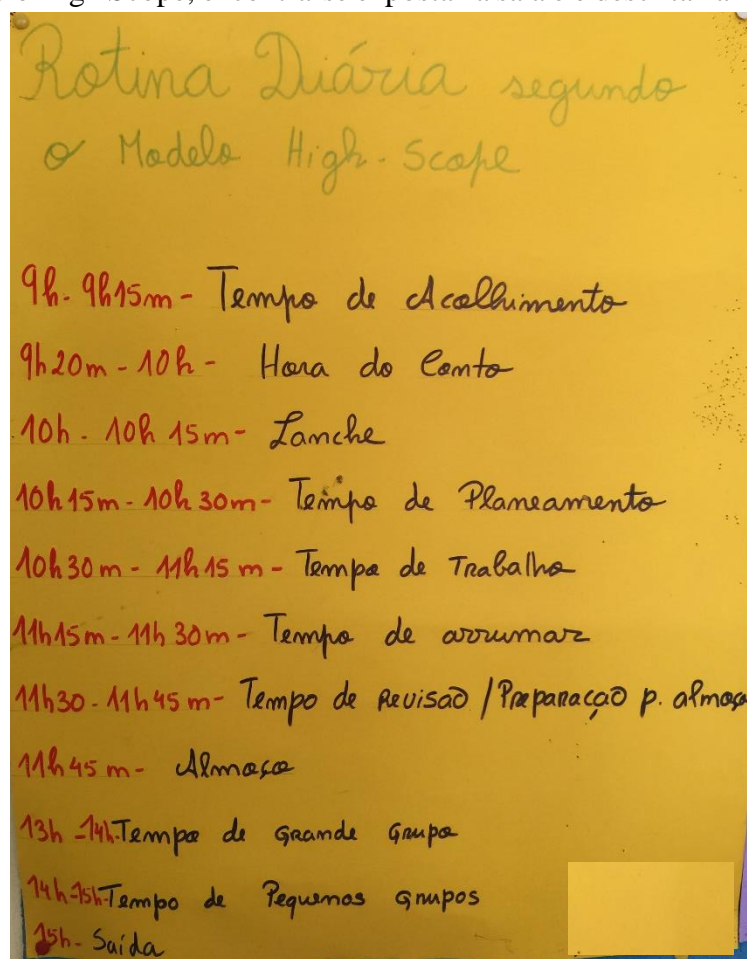 Rotina Diária segundo
o Modelo High-Scope
9h-9h15m- Tempo de Acolhimento
9h20m-10h- Hora do Conto
10h-10h15m- Lanche
10h15m-10h30m- Tempo de Planeamento
10h30m-11h15m- Tempo de Trabalho
11h15m-11h30m- Tempo de arrumar
11h30-11h45m- Tempo de Revisão / Preparação p. almoço
11h45m- Almoço
13h-14h-Tempo de Grande Grupo
14h-15h-Tempo de Pequenos Grupos
15h- Saída